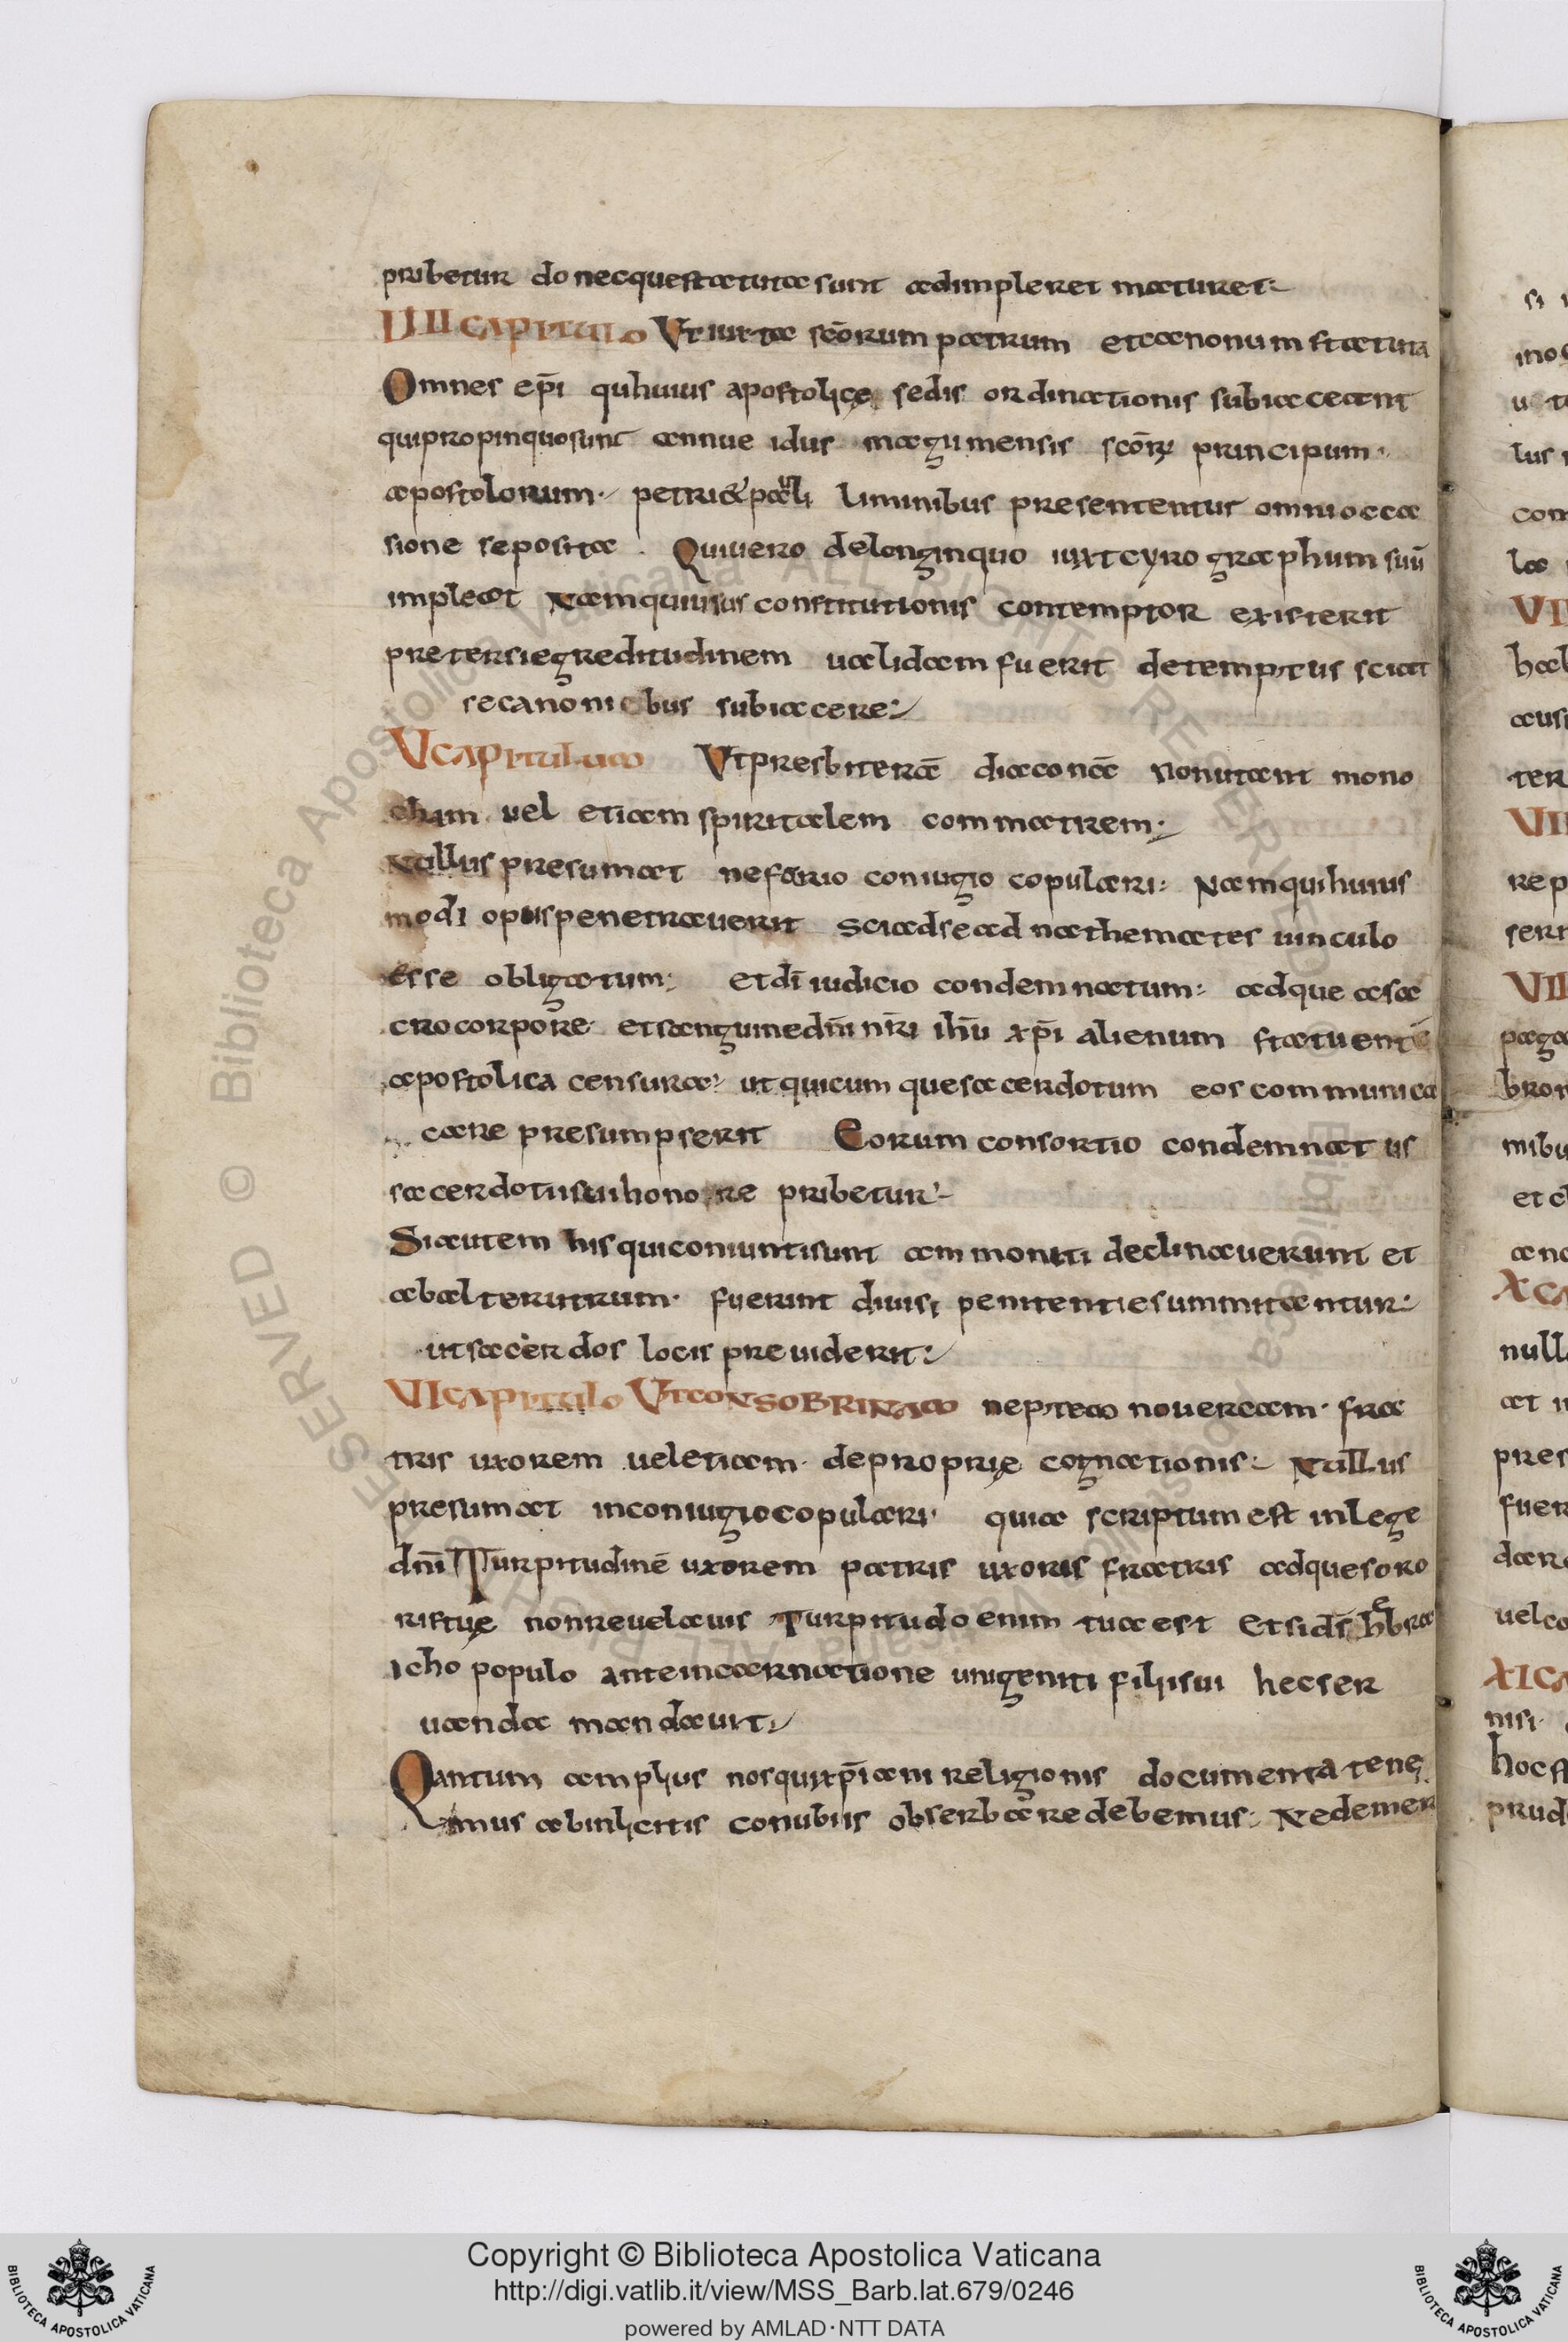 pribetur donecquestatutasunt adimpleret maturet
IIII CAPITULO Ut iuxta scōrum patrum etcanonum statuta
Omnes ep̄i quhuius apostolicę sedis ordinationis subiaceant
quipropinquosunt annue idus magii mensis scōrꝝ principum·
apostolorum· petri&pauli liminibus presententur omniocca
sione seposita · Quiuero delonginquo iuxtcyrographum suū
impleat Namquiuisusconstitutionis contemptor existerit
pretersiegreditudinem ualidamfuerit detemptus sciat
secanonicbus subiacere:
VCAPITULUM Utpresbiterā diaconā Nonutant mono
cham uel etiam spiritalem commatrem·
Nulluspresumat nefario coniugio copulari: Namquihuius
modi opuspenetrauerit sciadseadnathemates uinculo
esse obligatum: etdī iudicio condemnatum: adque asa
crocorpore etsanguinedn̄i nr̄i ihū xp̄i alienum statuent
apostolica censura: utquicumquesacerdotum eoscommunica
care presumpserit Eorumconsortio condemnat us
sacerdotiisuihonore pribetur
Siautem hisquiconiuntisunt ammoniti declinauerunt et
abalterutrum· fuerint diuisi penitentiesummitantur:
utsacerdos locis preuiderit:
VICAPITULO UTCONSOBRINAM neptem nouercam· fra
tris uxorem ueletiam· deproprię cognationis: Nullus
presumat inconiugiocopulari· quia scriptumest inlege
dn̄i Turpitudinē uxorem patris uxoris fratris adquesoro
ristuę nonreuelauis Turpitudo enim tuaest Etsidī hebra
icho populo anteincarnatione unigeniti filiisui hecser
uanda mandauit:
Qantum amplius nosquixp̄iani religionis documenta tenę
mus abinlicitis conubiis obserbaredebemus: Nedemer